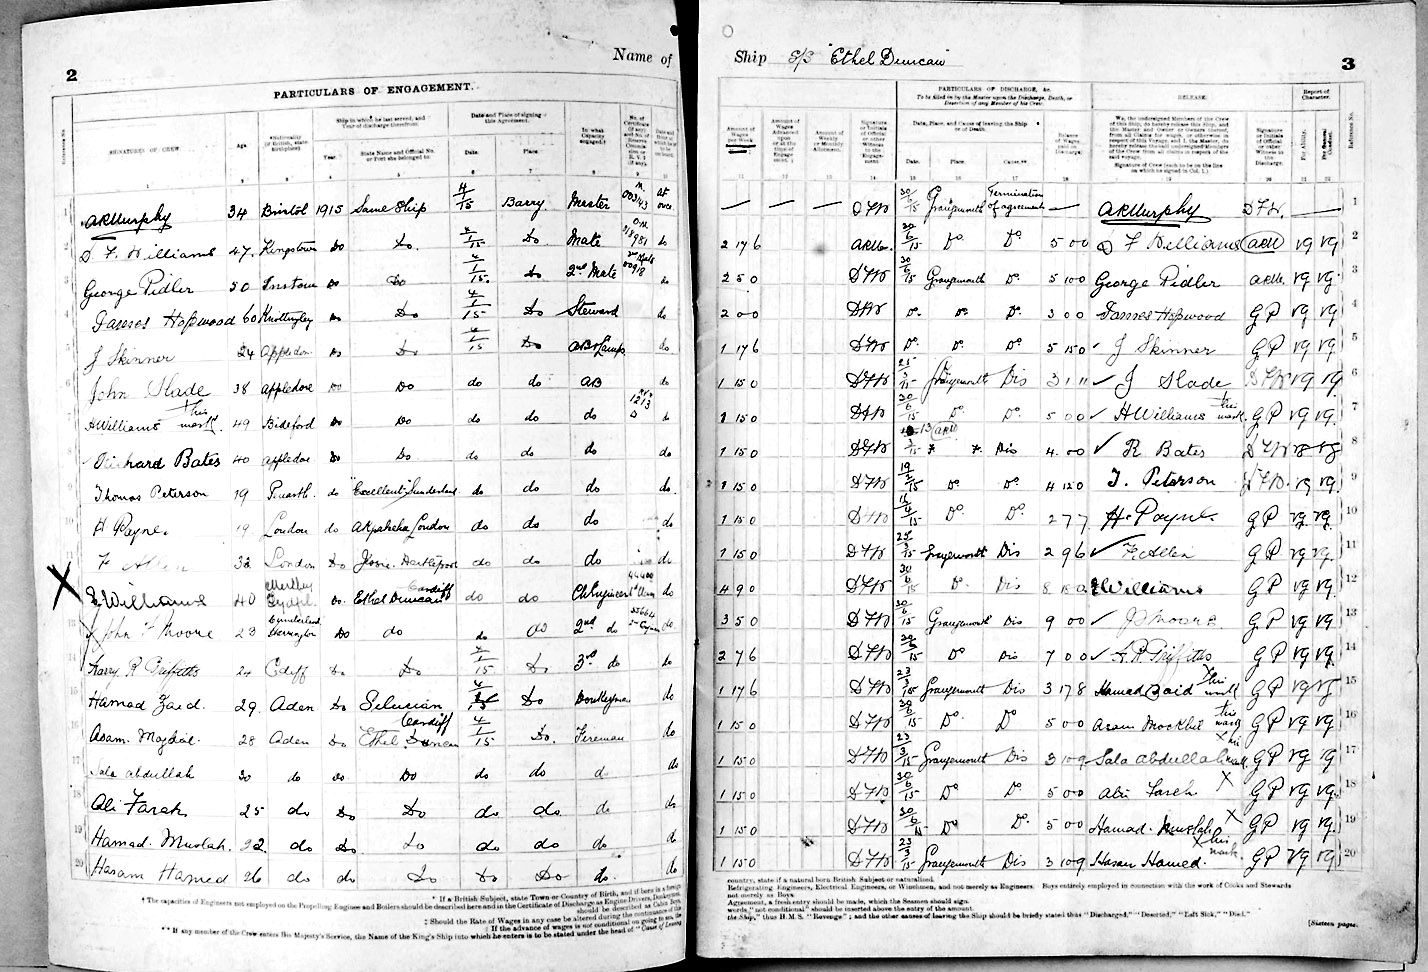 2
Name of
PARTICULARS OF ENGAGEMENT.
SIGNATURES OF CREW.
Age.
*Nationality (if British, state birthplace)
Ship in which he last served, and Year of discharge therefrom.
Year.
State Name and Official No. or Port she belonged to.
Date and Place of signing this Agreement.
Date.
Place.
In what Capacity engaged.
1 A R Murphy 34 Bristol 1915 Same Ship 4/1/15 Barry Master 003143 at once
2 D. F. Williams 47 Kingstown Do Do. 4/1/15 Do. Mate 318981 do
3 George Pidler 50 Instow Do Do 4/1/15. Do 2nd Mate do
4 James Hopwood 60 Knottingley Do Do 4/1/15 Do Steward do
5 J Skinner 24 Appledore Do Do 4/1/15 Do AB & Lamps do
6 John Slade 38 Appledore Do Do do do AB do
7 H Williams this mark. 49 Bideford Do Do do do do do
8 Richard Bates 40 Appledore Do Do do do do do
9 Thomas Peterson 19 Penarth. do Excellent Sunderland do do do do.
10 H Payne 19 London do London do do do do
11 F Allen 32 London Do Hartlepool do do do do
12 X E Williams 40 Do. Ethel Duncan Cardiff do do Ch Engineer 44400 do
13 John F Moore 23 Cumberland Harrington Do do do do 2nd do do
14 Harry R Griffiths 24 Cdiff Do Do 4/1/15 Do 3rd do do
15 Hamad Zaid 29. Aden Do Silurian 4/1/15 Do Donkeyman do
16 Asam. 28 Aden Do Ethel Duncan Cardiff 4/1/15 Do. Fireman do
17 Sala Abdullah 30 do do Do do do do do
18 Ali Farah 25 do Do Do do do. do do
19 Hamad. Muslah. 22. do Do. Do do do do do
20 Hasam Hamed 26 do do Do Do Do do. do
* If a British Subject, state Town or Country of Birth, and if born in a foreign
† The capacities of Engineers not employed on the Propelling Engines and Boilers should be described here and in the Certificate of Discharge as Engine Drivers, Donkeymen,
should be described as Cabin Boys.
‡ Should the Rate of Wages in any case be altered during the continuance of this
‖ If the advance of wages is not conditional on going to sea, the
** If any member of the Crew enters His Majesty's Service, the Name of the King's Ship into which he enters is to be stated under the head of "Cause of Leaving
Ship S/S "Ethel Duncan"
3
PARTICULARS OF DISCHARGE, &c.
To be filled in by the Master upon the Discharge, Death, or Desertion of any Member of his Crew.
RELEASE.
Report of Character.
Amount of Wages per Week
Amount of Wages Advanced upon or at the time of Engagement.
Amount of Weekly or Monthly Allotment.
Signature or Initials of Official or other Witness to the Engagement.
Date, Place, and Cause of leaving this Ship or of Death.
Date.
Place.
Cause.**
Balance of Wages paid on Discharge.
We, the undersigned Members of the Crew of this Ship, do hereby release this Ship, and the Master and Owner or Owners thereof, from all Claims for Wages, or otherwise in respect of this Voyage; and I, the Master, do hereby release the undersigned Members of the Crew from all claims in respect of the said voyage.
Signature of Crew (each to be on the line on which he signed in Col. 1.)
Signature or Initials of Official or other Witness to Discharge.
For Ability.
For General Conduct.
Reference No.
— — — D F W 30/6/15 Grangemouth Termination of agreement — A R Murphy D F W. — 1
2 17 6 ARM. 30/6/15 Do Do. 5 0 0 D F Williams ARM VG VG 2
2 5 0 D F W 30/6/15 Grangemouth Do 5 10 0 George Pidler ARM VG VG 3
2 0 0 D F W Do. Do. Do. 3 0 0 James Hopwood G P VG VG 4
1 17 6 D F W Do. Do. Do. 5 15 0 J Skinner G P VG VG 5
1 15 0 D F W 25/3/15 Grangemouth Dis 3 1 11 J Slade D F W VG VG 6
1 15 0 D F W 30/6/15 Do. Do. 5 0 0 H Williams this mark. G P VG VG. 7
1 15 0 D F W Dis 4. 0 0 R Bates D F W VG VG 8
1 15 0 D F W Do Do 4 12 0 T. Peterson D F W. VG VG 9
1 15 0 D F W Do. Do. 2 7 7 H. Payne G P VG VG. 10
1 15 0 D F W 25/3/15 Grangemouth Dis 2 9 6 F. Allen G P VG VG. 11
4 9 0 D F W 30/6/15 Do. Dis E Williams G P VG VG 12
3 5 0 D F W 30/6/15 Grangemouth Dis 9 0 0 J F Moore. G P VG VG 13
2 7 6 D F W 30/6/15 Do Dis 7 0 0 H. R Griffiths G P VG VG 14
1 17 6 D F W 23/3/15 Grangemouth Dis 3 17 8 Hamad Zaid X his mark G P VG VG 15
1 15 0 D F W 30/6/15 Do. Do 5 0 0 Asam Mockbil this mark G P VG VG 16
1 15 0 D F W 23/3/15 Grangemouth Dis 3 10 9 Sala Abdullah X his mark G P VG VG 17
1 15 0 D F W. 30/6/15 Do Do 5 0 0 Abi Fareh X G P VG VG. 18
1 15 0 D F W 30/6/15 Do Do. 5 0 0 Hamad. Muslah X G P VG VG. 19
1 15 0 D F W 23/3/15 Grangemouth Dis 3 10 9 Hasan Hamed. X his mark. G P VG VG 20
country, state if a natural born British Subject or naturalized.
Refrigerating Engineers, Electrical Engineers, or Winchmen, and not merely as Engineers. Boys entirely employed in connection with the work of Cooks and Stewards
not merely as Boys
Agreement, a fresh entry should be made, which the Seamen should sign.
words "not conditional" should be inserted above the entry of the amount.
the Ship," thus H.M.S. "Revenge"; and the other causes of leaving the Ship should be briefly stated thus "Discharged," "Deserted," "Left Sick," "Died."
[Sixteen pages.